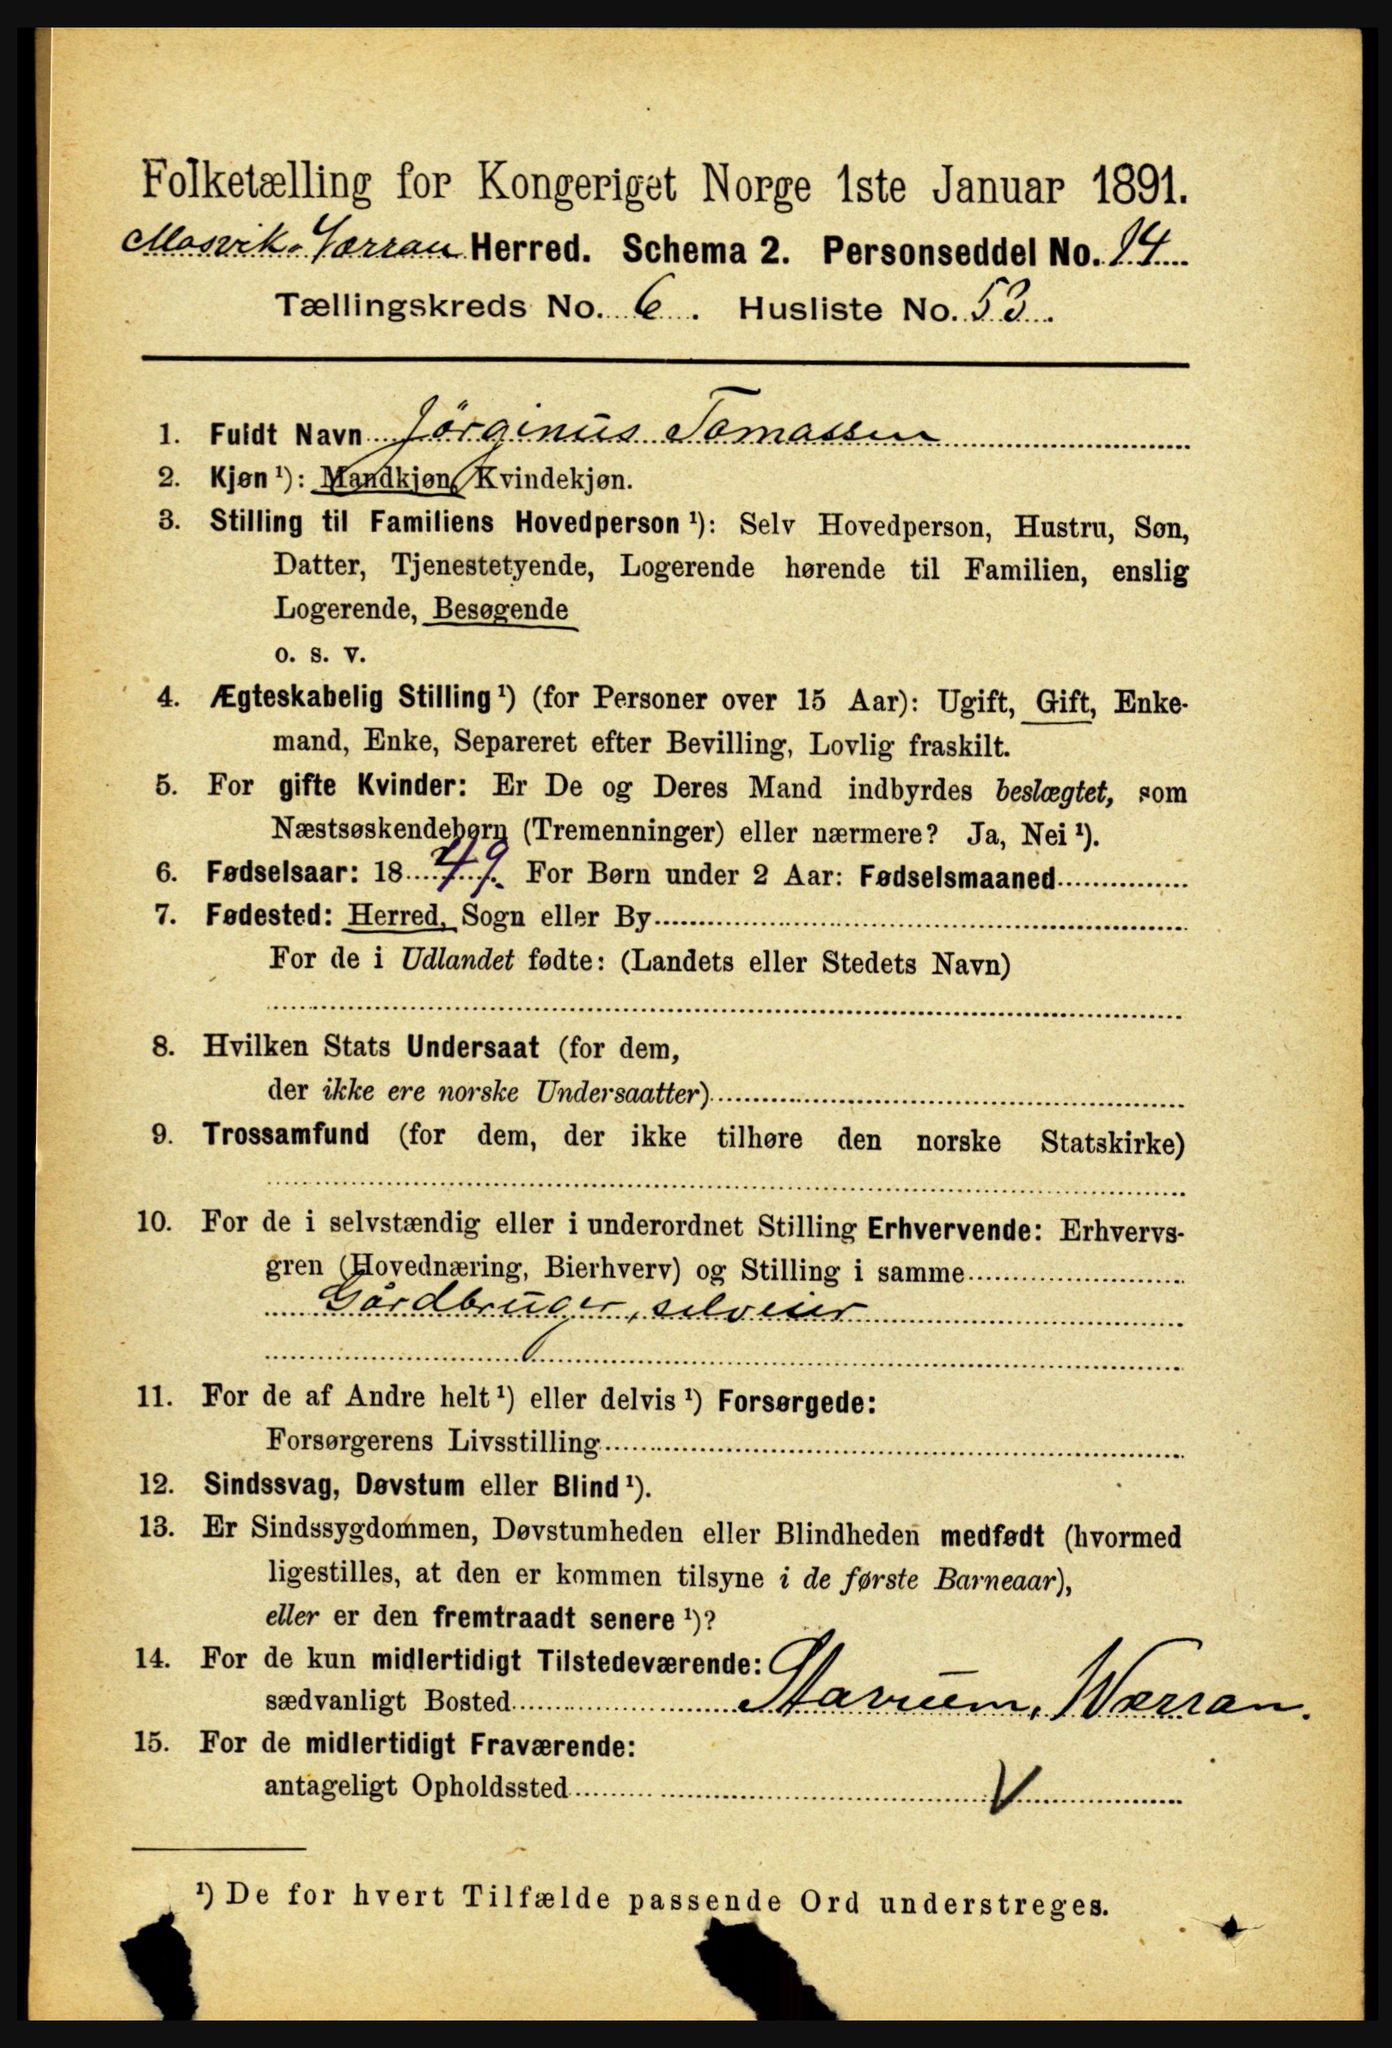 Folketælling for Kongeriget Norge 1ste Januar 1891.
Mosvik Værran Herred. Schema 2. Personseddel No. 14
Tællingskreds No. 6. Husliste No. 53.
1. Fuldt Navn Jörginus Tomassen
2. Kjøn¹): Mandkjøn, Kvindekjøn.
3. Stilling til Familiens Hovedperson¹): Selv Hovedperson, Hustru, Søn,
Datter, Tjenestetyende, Logerende hørende til Familien, enslig
Logerende, Besøgende
o. s. v.
4. Ægteskabelig Stilling¹) (for Personer over 15 Aar): Ugift, Gift, Enke-
mand, Enke, Separeret efter Bevilling, Lovlig fraskilt.
5. For gifte Kvinder: Er De og Deres Mand indbyrdes beslægtet, som
Næstsøskendebørn (Tremenninger) eller nærmere? Ja, Nei¹).
6. Fødselsaar: 1849. For Børn under 2 Aar: Fødselsmaaned
7. Fødested: Herred, Sogn eller By
For de i Udlandet fødte: (Landets eller Stedets Navn)
8. Hvilken Stats Undersaat (for dem,
der ikke ere norske Undersaatter)
9. Trossamfund (for dem, der ikke tilhøre den norske Statskirke)
10. For de i selvstændig eller i underordnet Stilling Erhvervende: Erhvervs-
gren (Hovednæring, Bierhverv) og Stilling i samme
Gårdbruger, selveier
11. For de af Andre helt¹) eller delvis¹) Forsørgede:
Forsørgerens Livsstilling
12. Sindssvag, Døvstum eller Blind¹).
13. Er Sindssygdommen, Døvstumheden eller Blindheden medfødt (hvormed
ligestilles, at den er kommen tilsyne i de første Barneaar),
eller er den fremtraadt senere¹)?
14. For de kun midlertidigt Tilstedeværende:
sædvanligt Bosted Stavrum, Værran.
15. For de midlertidigt Fraværende:
antageligt Opholdssted V
¹) De for hvert Tilfælde passende Ord understreges.